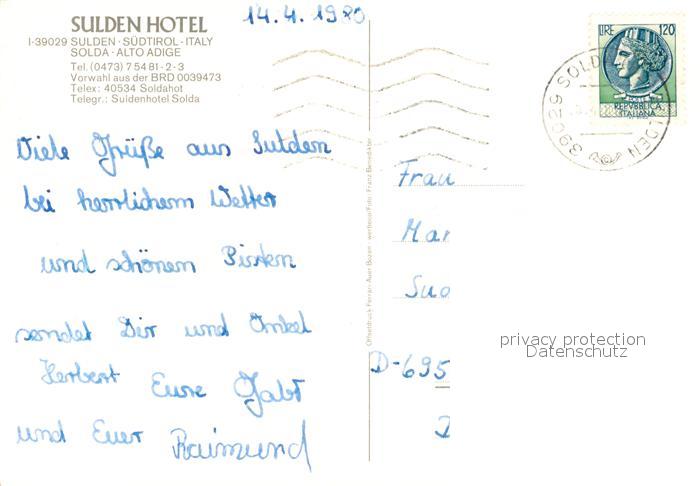 SULDEN HOTEL
I-39029 SULDEN · SÜDTIROL · ITALY
SOLDA · ALTO ADIGE
Tel. (0473) 75481 - 2 - 3
Vorwahl aus der BRD 0039473
Telex: 40534 Soldahot
Telegr.: Suldenhotel Solda
14.4.1980
LIRE 120
POSTE
REPVBBLICA
ITALIANA
39029 SOLDA SULDEN
Viele Grüße aus Sulden
bei herrlichem Wetter
und schönem Pisten
sendet Dir und Onkel
Herbert Eure Gabi
und Euer Raimund
Offsetdruck Ferrari-Auer Bozen - werbecolFoto: Franz Benedikter
Frau
Mar
Suo
D-695
privacy protection
Datenschutz